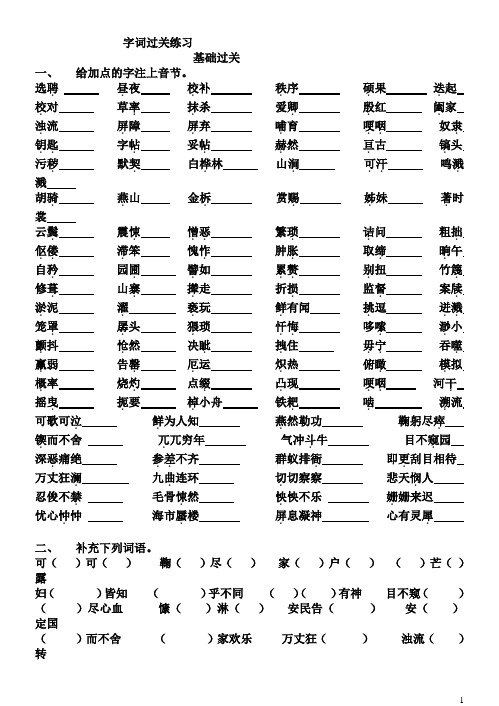 字词过关练习
基础过关
一、 给加点的字注上音节。
选聘_______ 昼夜_______ 校补_______ 秩序_______ 硕果_______ 迭起
校对_______ 草率_______ 抹杀_______ 爱卿_______ 殷红_______ 阖家
浊流_______ 屏障_______ 屏弃_______ 哺育_______ 哽咽_______ 奴隶
钥匙_______ 字帖_______ 妥帖_______ 赫然_______ 亘古_______ 镐头
污秽_______ 默契_______ 白桦林_______ 山涧_______ 可汗_______ 鸣溅
溅____
胡骑_______ 燕山_______ 金柝_______ 赏赐_______ 姊妹_______ 著时
裳____
云鬓_______ 震悚_______ 憎恶_______ 繁琐_______ 诘问_______ 粗拙
伛偻_______ 滞笨_______ 愧怍_______ 肿胀_______ 取缔_______ 晌午
自矜_______ 园圃_______ 譬如_______ 累赘_______ 别扭_______ 竹篾
修葺_______ 山寨_______ 撵走_______ 折损_______ 监督_______ 案牍
淤泥_______ 濯_______ 亵玩_______ 鲜有闻_______ 挑逗_______ 迸溅
笼罩_______ 孱头_______ 猥琐_______ 忏悔_______ 哆嗦_______ 渺小
颤抖_______ 怆然_______ 决眦_______ 拽住_______ 毋宁_______ 吞噬
羸弱_______ 告罄_______ 厄运_______ 炽热_______ 俯瞰_______ 模拟
概率_______ 烧灼_______ 点缀_______ 凸现_______ 哽咽_______ 河干
摇曳_______ 扼要_______ 棹小舟_______ 铁耙_______ 啮_______ 溯流
可歌可泣_______ 鲜为人知_______ 燕然勒功_______ 鞠躬尽瘁
锲而不舍_______ 兀兀穷年_______ 气冲斗牛_______ 目不窥园
深恶痛绝_______ 参差不齐_______ 群蚁排衙_______ 即更刮目相待
万丈狂澜_______ 九曲连环_______ 切切察察_______ 悲天悯人
忍俊不禁_______ 毛骨悚然_______ 怏怏不乐_______ 姗姗来迟
忧心忡忡_______ 海市蜃楼_______ 屏息凝神_______ 心有灵犀
二、 补充下列词语。
可（ ）可（ ） 鞠（ ）尽（ ） 家（ ）户（ ） （ ）芒（ ）
露
妇（ ）皆知 （ ）乎不同 （ ）（ ）有神 目不窥（ ）
（ ）尽心血 慷（ ）淋（ ） 安民告（ ） 安（ ）
定国
（ ）而不舍 （ ）家欢乐 万丈狂（ ） 浊流（ ）
转
1